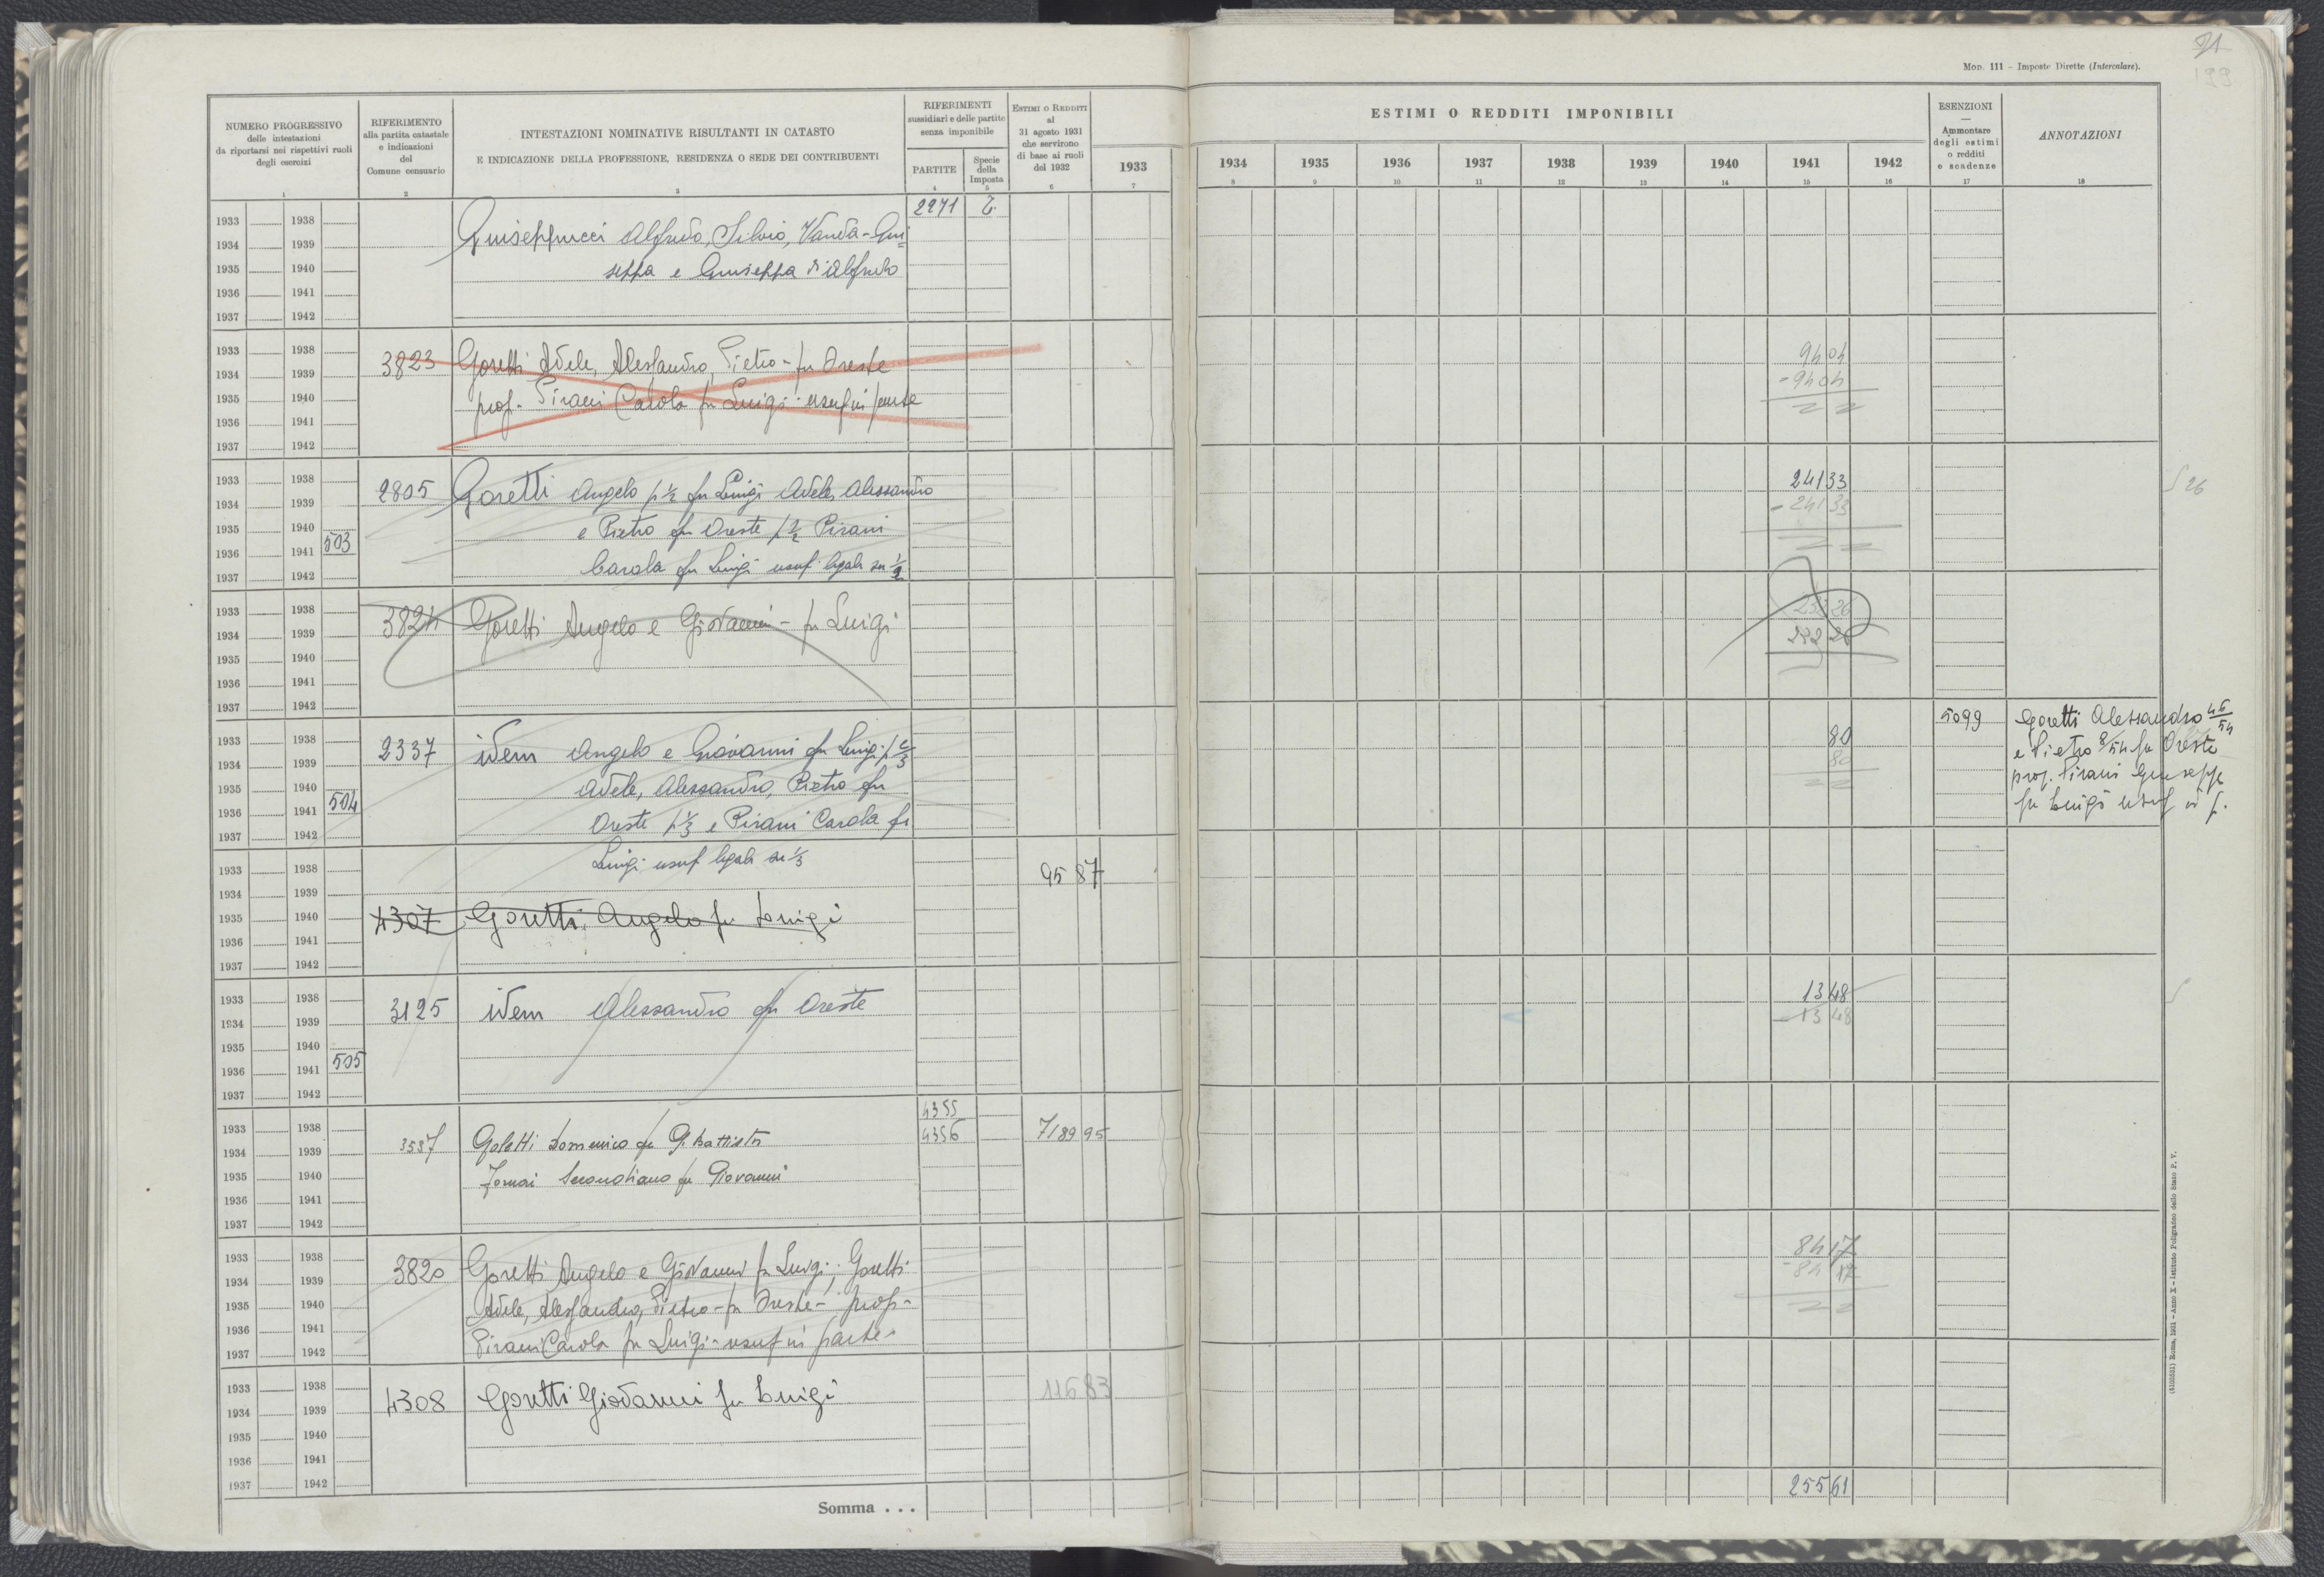 71
199
Mod. 111 – Imposte Dirette (Intercalare).
NUMERO PROGRESSIVO
delle intestazioni
da riportarsi nei rispettivi ruoli
degli esercizi
1
RIFERIMENTO
alla partita catastale
e indicazioni
del
Comune censuario
2
INTESTAZIONI NOMINATIVE RISULTANTI IN CATASTO
E INDICAZIONE DELLA PROFESSIONE, RESIDENZA O SEDE DEI CONTRIBUENTI
3
RIFERIMENTI
sussidiari e delle partite
senza imponibile
PARTITE
4
Specie
della
Imposta
5
ESTIMI O REDDITI
al
31 agosto 1931
che servirono
di base ai ruoli
del 1932
6
1933
7
ESTIMI O REDDITI IMPONIBILI
1934 1935 1936 1937 1938 1939 1940 1941 1942
8 9 10 11 12 13 14 15 16
ESENZIONI
—
Ammontare
degli estimi
o redditi
e scadenze
17
ANNOTAZIONI
18
1933 1938 2271 T.
1934 1939 Giuseppucci Alfredo, Silvio, Vanda-Giu=
1935 1940 seppa e Giuseppa di Alfredo
1936 1941
1937 1942
1933 1938 3823 Goretti Adele, Alessandro, Pietro - fu Oreste 94 04
1934 1939 - 94 04
1935 1940 prop. Pirani Carola fu Luigi usuf in parte
1936 1941
1937 1942
1933 1938 2805 Goretti Angelo p 1/2 fu Luigi Adele, Alessandro 241 33 26
1934 1939 - 241 33
1935 1940 e Pietro fu Oreste p 1/2 Pirani
1936 1941 503
1937 1942 Carola fu Luigi usuf. legale su 1/2
1933 1938 3824 Goretti Angelo e Giovanni - fu Luigi 232 26
1934 1939 232 26
1935 1940
1936 1941
1937 1942
5099 Goretti Alessandro 46/54
e Pietro 8/54 fu Oreste
prop. Pirani Giuseppe
fu Luigi usuf in p.
1933 1938 2337 idem Angelo e Giovanni fu Luigi p 2/3 80
1934 1939 80
1935 1940 Adele, Alessandro, Pietro fu
1936 1941 504
1937 1942 Oreste p 1/3 e Pirani Carola fu
1933 1938 Luigi usuf legale su 1/3 95 87
1934 1939
1935 1940 4307 Goretti Angelo fu Luigi
1936 1941
1937 1942
1933 1938 3125 idem Alessandro fu Oreste 13 48
1934 1939 - 13 48
1935 1940
1936 1941 505
1937 1942
4355
1933 1938 3537 Goletti Domenico fu G. Battista 4356 7189 95
1934 1939
1935 1940 Fornai Secondiano fu Giovanni
1936 1941
1937 1942
1933 1938 3820 Goretti Angelo e Giovanni fu Luigi; Goretti 84 17
1934 1939 - 84 17
1935 1940 Adele, Alessandro, Pietro - fu Oreste - prop -
1936 1941
1937 1942 Pirani Carola fu Luigi - usuf in parte -
1933 1938 4308 Goretti Giovanni fu Luigi 116 83
1934 1939
1935 1940
1936 1941
1937 1942 255 61
Somma . . .
(3105531) Roma, 1931 – Anno X – Istituto Poligrafico dello Stato P. V.